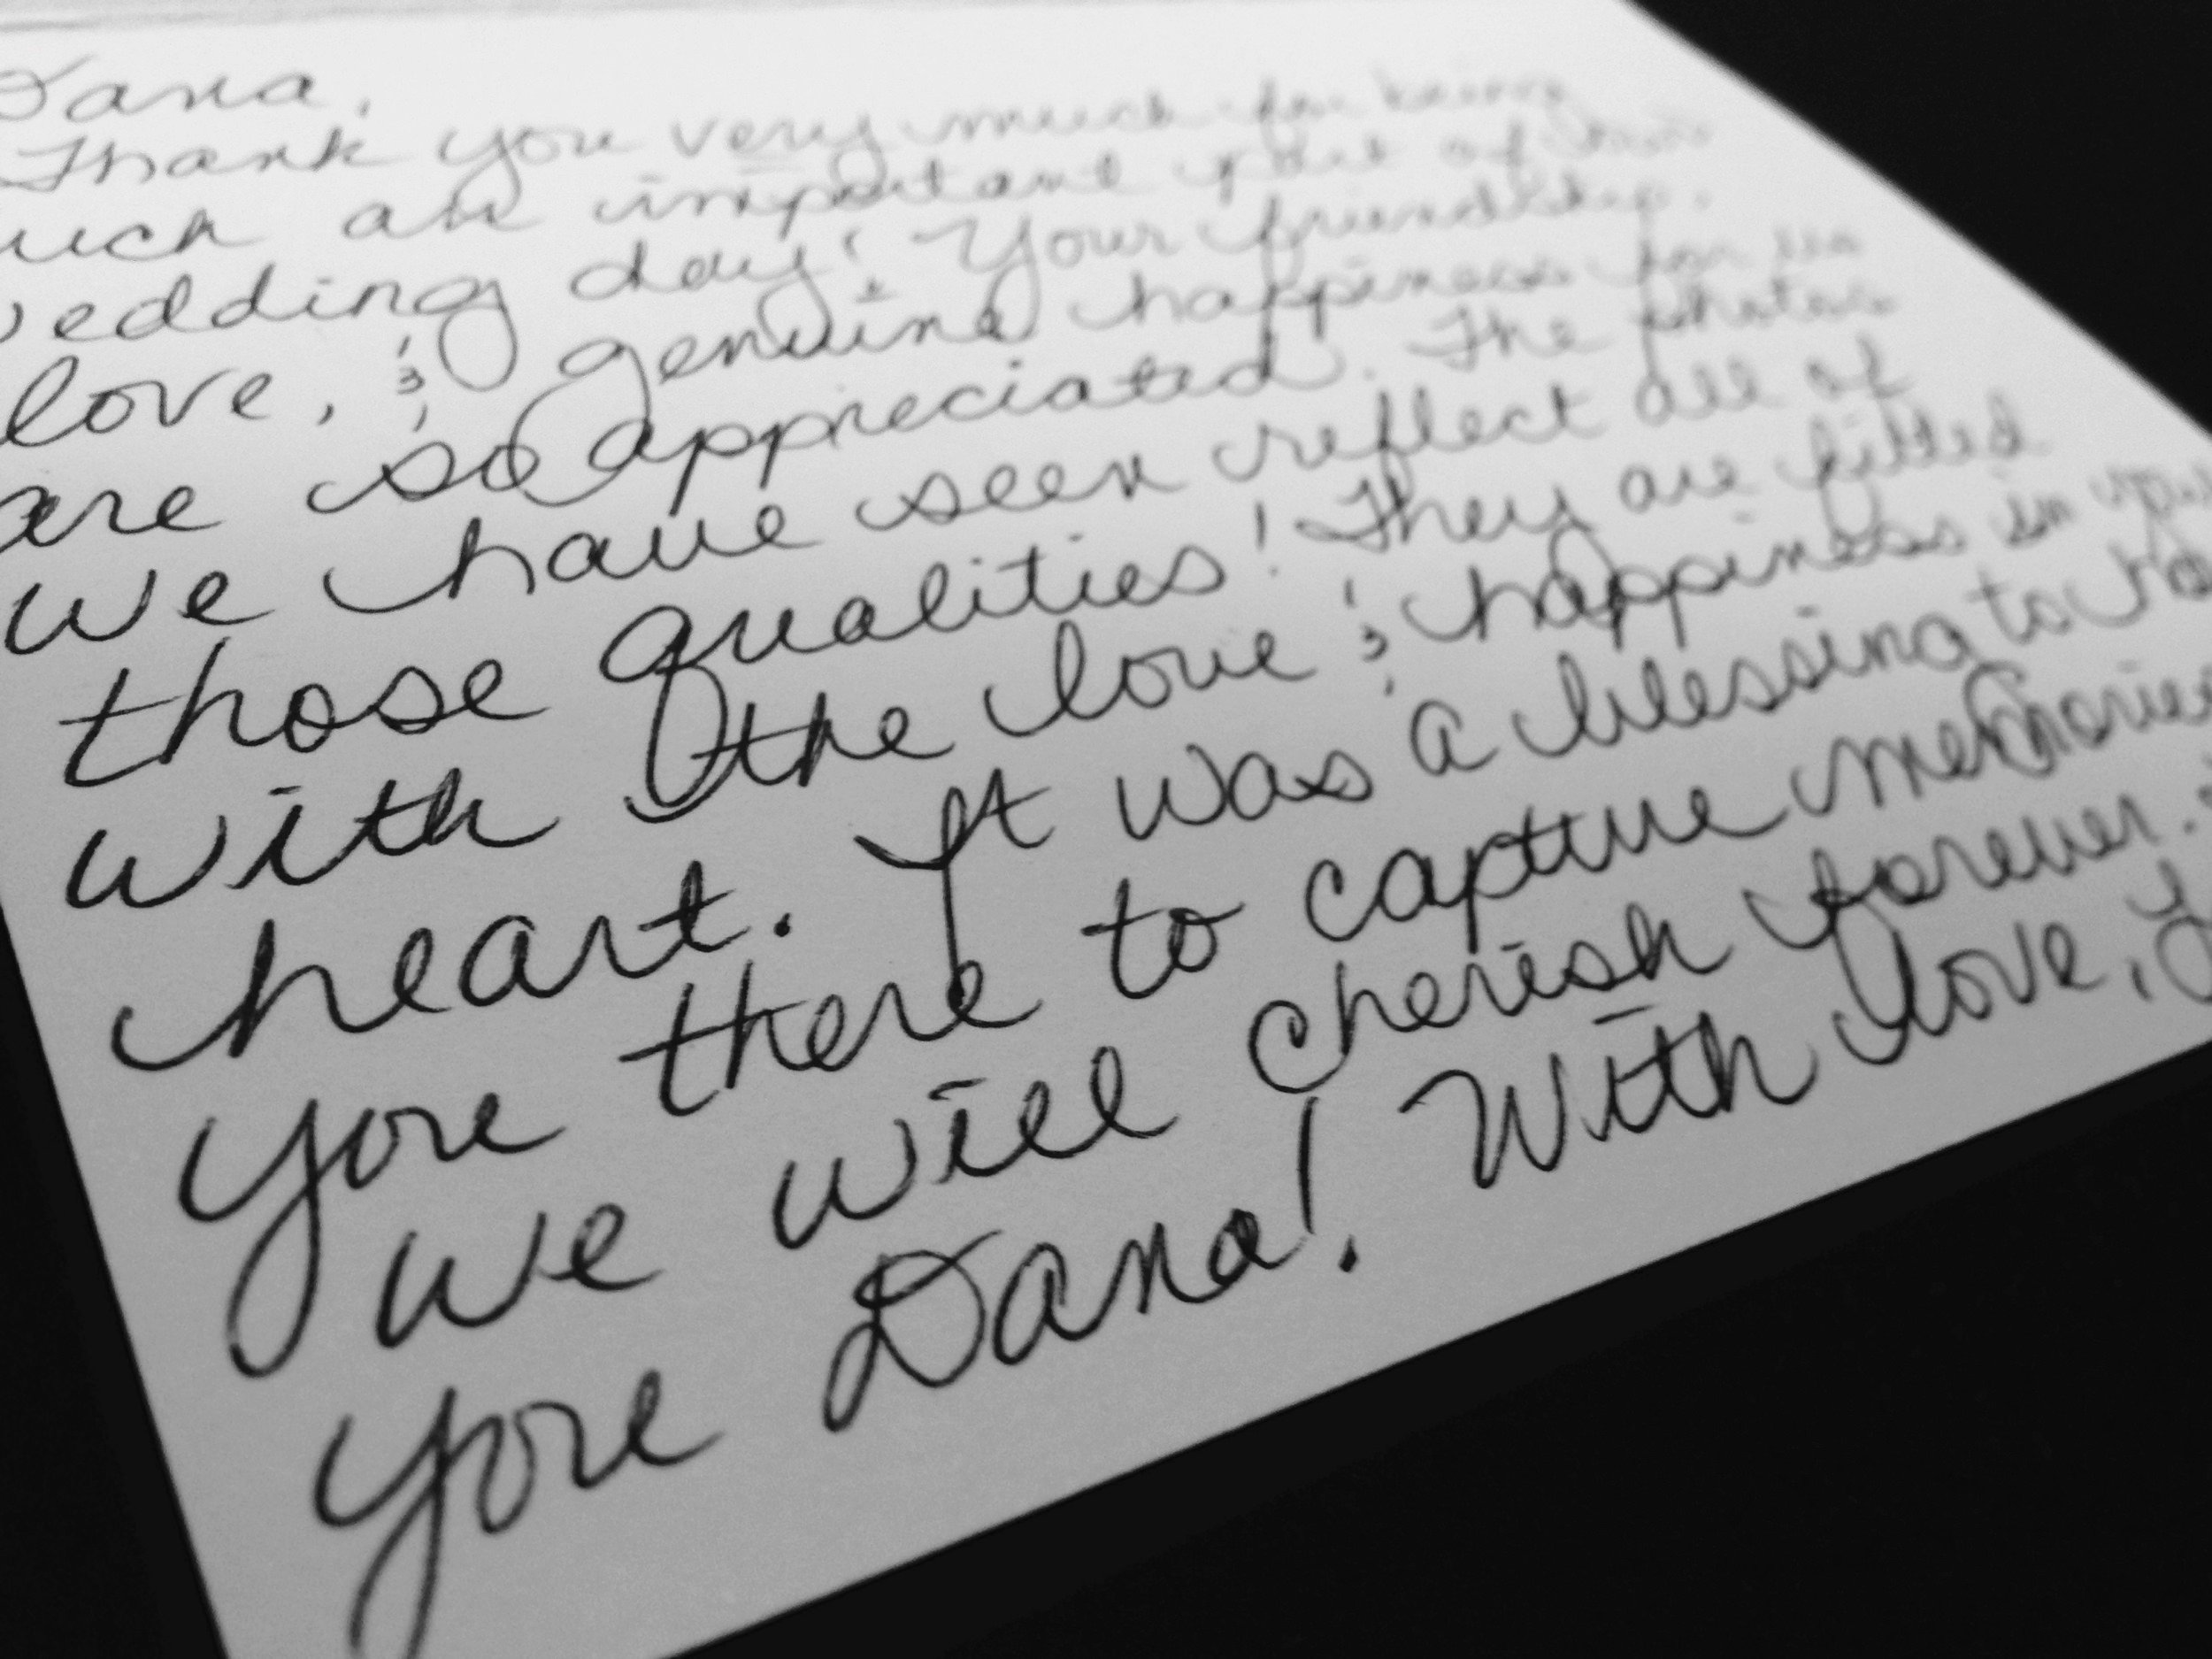 Dana,
Thank you very much for being
such an important part of our
wedding day! Your friendship,
love, & genuine happiness for us
are so appreciated. The photos
we have seen reflect all of
those qualities! They are filled
with the love & happiness in your
heart. It was a blessing to have
you there to capture memories
we will cherish forever.
you Dana! With love,